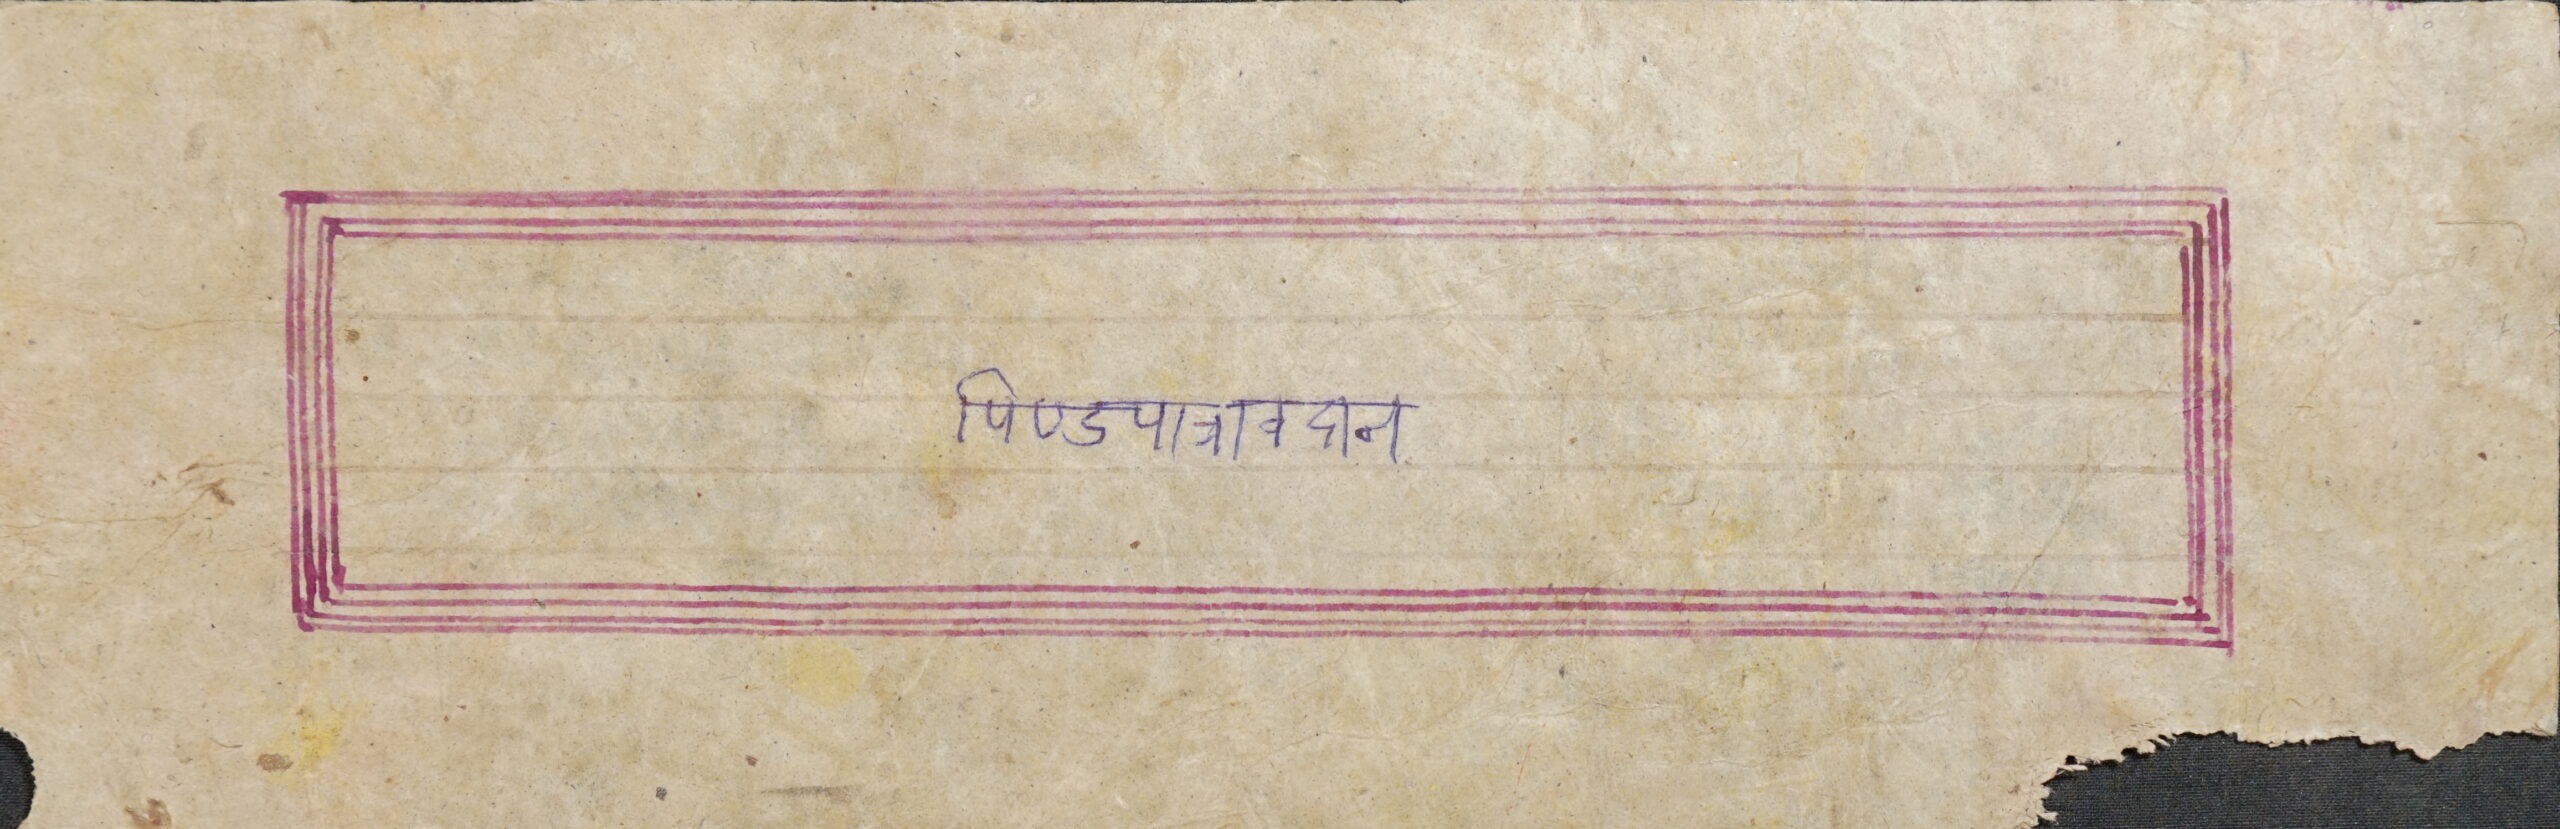 पिण्डपात्रावदान